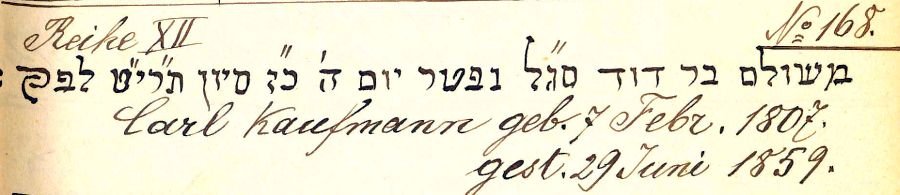 Reihe XII № 168.
משולם בר דוד סג״ל נפטר יום ה' כ״ז סיון תרי״ט לפק:
Carl Kaufmann geb. 7 Febr. 1807.
gest. 29 Juni 1859.